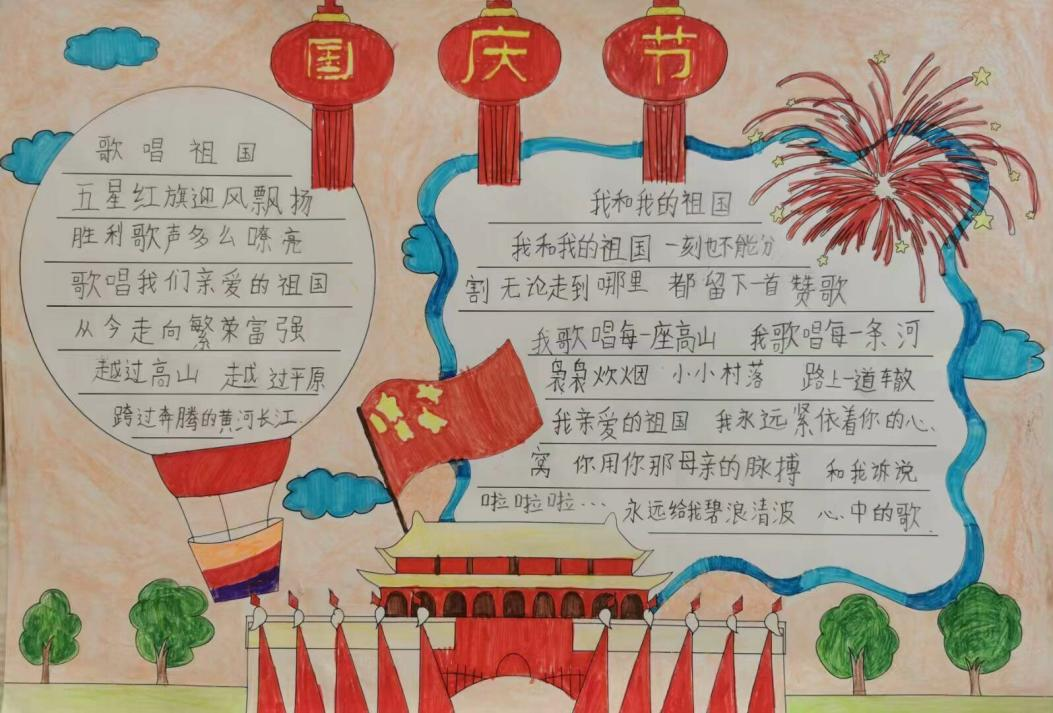 国庆节
歌唱祖国
五星红旗迎风飘扬
胜利歌声多么嘹亮
歌唱我们亲爱的祖国
从今走向繁荣富强
越过高山 越过平原
跨过奔腾的黄河长江.
我和我的祖国
我和我的祖国 一刻也不能分
割 无论走到哪里 都留下一首赞歌
我歌唱每一座高山 我歌唱每一条河
袅袅炊烟 小小村落 路上一道车辙
我亲爱的祖国 我永远紧依着你的心、
窝 你用你那母亲的脉搏 和我诉说
啦啦啦… 永远给我碧浪清波 心中的歌.